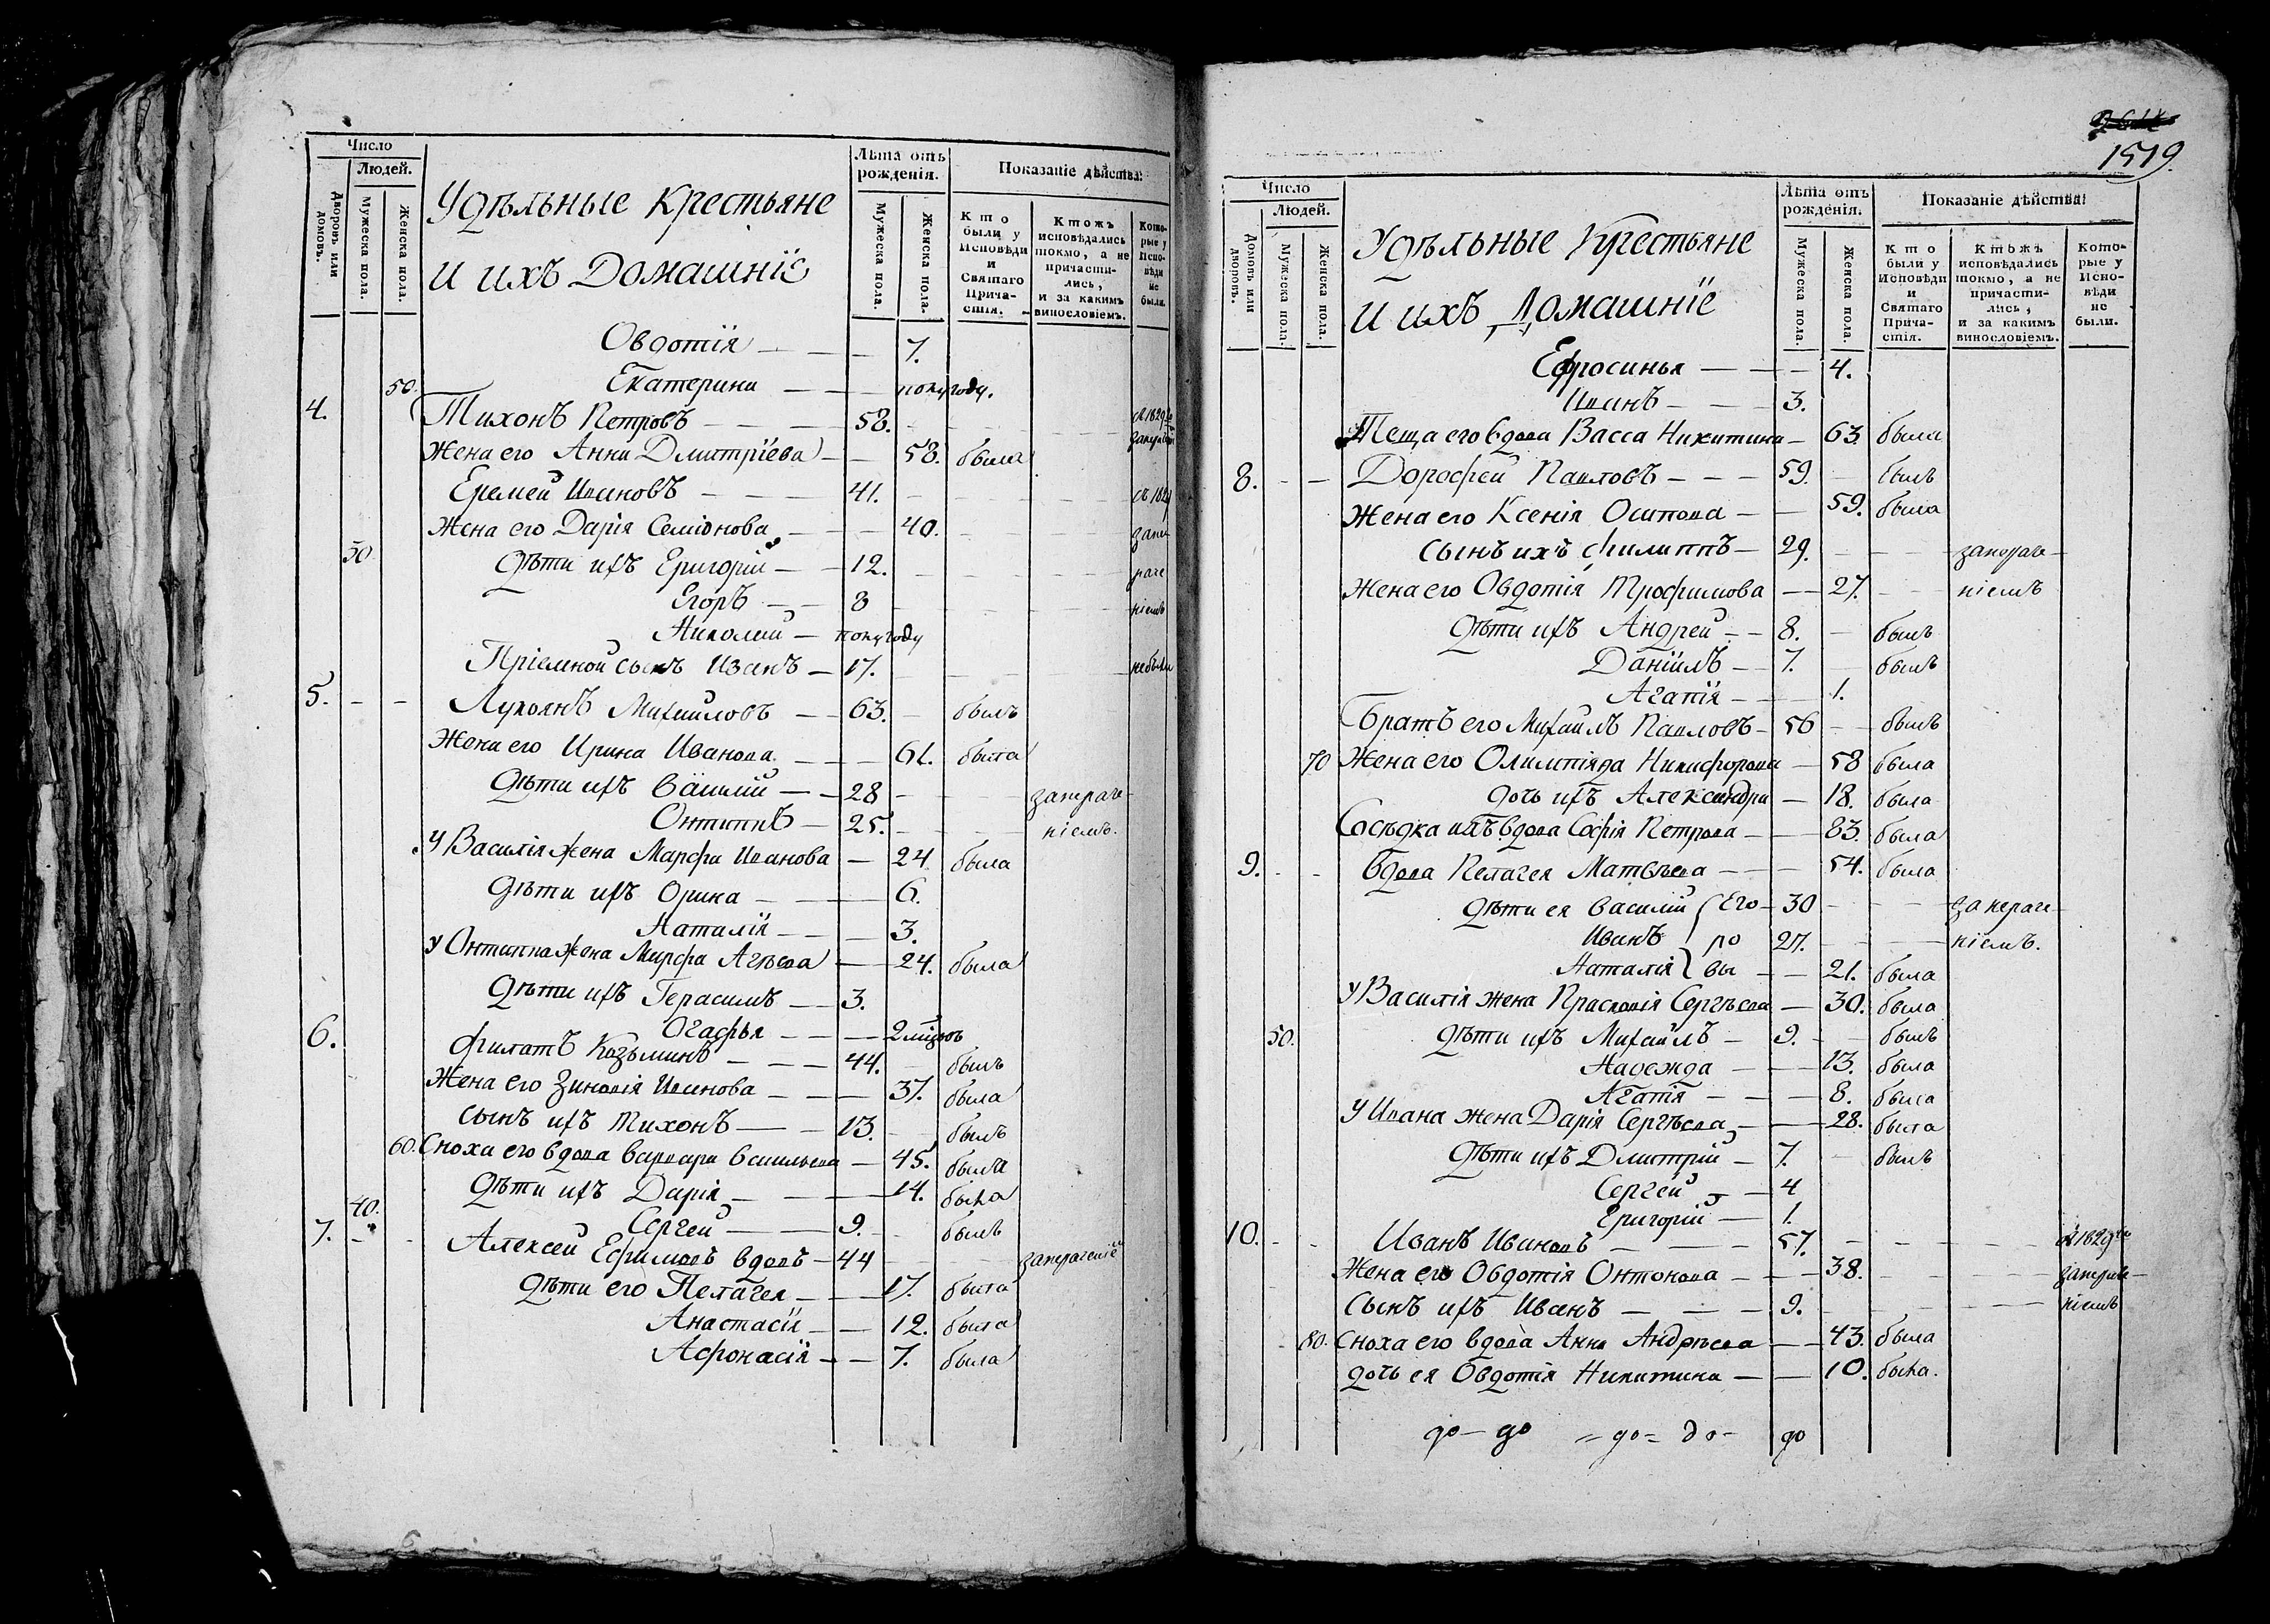 Число
Людей.
Дворовъ или домовъ.
Мужеска пола.
Женска пола.
Удѣльные Крестьяне
и ихъ Домашніе
Лѣта отъ рожденія.
Мужеска пола.
Женска пола.
Показаніе дѣйства:
Кто были у Исповѣди и Святаго Прича-стія.
Ктожъ исповѣдались токмо, а не причасти-лись, и за какимъ винословіемъ.
Кото-рые у Испо-вѣди не были.
Овдотія — — 7.
50. Екатерина — — полугоду.
4. Тихонъ Петровъ — — 58. съ 1829го
Жена его Анна Дмитріева — — 58. была
Еремей Ивановъ — — 41. съ 1829
Жена его Дарія Семіонова — — 40. запи
30 Дѣти ихъ Григорій — — 12. раче
Егоръ — — 8 ніемъ
Николай — полугоду
Пріемной сынъ Иванъ — 17. небыли
5. - - Лукоянъ Михайловъ — — 63. былъ
Жена его Ирина Иванова — — 61. была
Дѣти ихъ Василій — — 28 запраче-
Онтипъ — 25. ніемъ.
У Василія жена Марфа Иванова — 24 была
Дѣти ихъ Орина — — 6.
Наталія — — 3.
У Онтипа жена Марфа Агѣева — 24. была
Дѣти ихъ Герасимъ — 3.
Огафья — — 2 мѣсяцовъ
6. Филатъ Козьминъ — — 44. былъ
Жена его Зиновія Иванова — — 37. была
Сынъ ихъ Тихонъ — — 13. былъ
60. Сноха его вдова Варвара Васильева — 45. была
Дѣти ихъ Дарія — — 14. была
40. Сергей — — 9. былъ
7. - - Алексей Ефимовъ вдовъ — 44
Дѣти его Пелагея — — 17. была
Анастасія — — 12. была
Афонасія — — 7. была
1519.
Число
Людей.
Домовъ или дворовъ.
Мужеска пола.
Женска пола.
Удѣльные Крестьяне
и ихъ Домашніе
Лѣта отъ рожденія.
Мужеска пола.
Женска пола.
Показаніе дѣйства:
Кто были у Исповѣди и Святаго Прича-стія.
Ктожъ исповѣдались токмо, а не причасти-лись, и за какимъ винословіемъ.
Кото-рые у Испо-вѣди не были.
Ефросинья — — 4.
Иванъ — — 3.
Теща его вдова Васса Никитина — 63 была
8. - - Дорофей Павловъ — — 59. былъ
Жена его Ксенія Осипова — — 59. была
Сынъ ихъ Филиппъ — 29.
Жена его Овдотія Трофимова — 27. ніемъ
Дѣти ихъ Андрей — — 8. былъ
Даніилъ — — 7. былъ
Агапія — — 1.
Братъ его Михаилъ Павловъ — 56 былъ
70 Жена его Олимпіяда Никифорова — 58 была
дочь ихъ Александра — 18. была
Сосѣдка ихъ вдова Софія Петрова — — 83. была
9. - - Вдова Пелагея Матвѣева — — 54. была
Дѣти ея Василій Его — 30
Иванъ ро 27. ніемъ.
Наталія вы — 21. была
У Василія жена Прасковія Сергѣева — 30. была
50. Дѣти ихъ Михаилъ — 9. былъ
Надежда — — 13. была
Агапія — — 8. была
У Ивана жена Дарія Сергѣева — — 28. была
Дѣти ихъ Дмитрій — 7. былъ
Сергей — — 4
Григорій — 1.
10. - - Иванъ Ивановъ — — 57. съ 1829го
Жена его Овдотія Онтонова — — 38.
Сынъ ихъ Иванъ — — 9. ніемъ
80. Сноха его вдова Анна Андрѣева — — 43. была
дочь ея Овдотія Никитина — — 10. была.
до — до = до = до — до